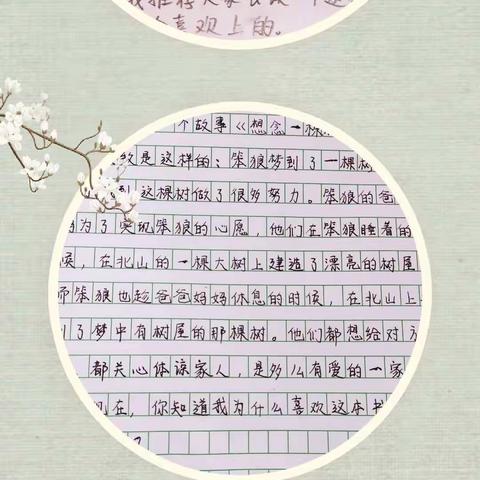 喜欢上的。
个故事《想念一棵
是这样的：笨狼梦到了一棵树
这棵树做了很多努力。笨狼的爸
为了实现笨狼的心愿，他们在笨狼睡着的
候，在北山的一棵大树上建造了漂亮的树屋
而笨狼也趁爸爸妈妈休息的时候，在北山上
到了梦中有树屋的那棵树。他们都想给对方
都关心体谅家人，是多么有爱的一家
现在，你知道我为什么喜欢这本书